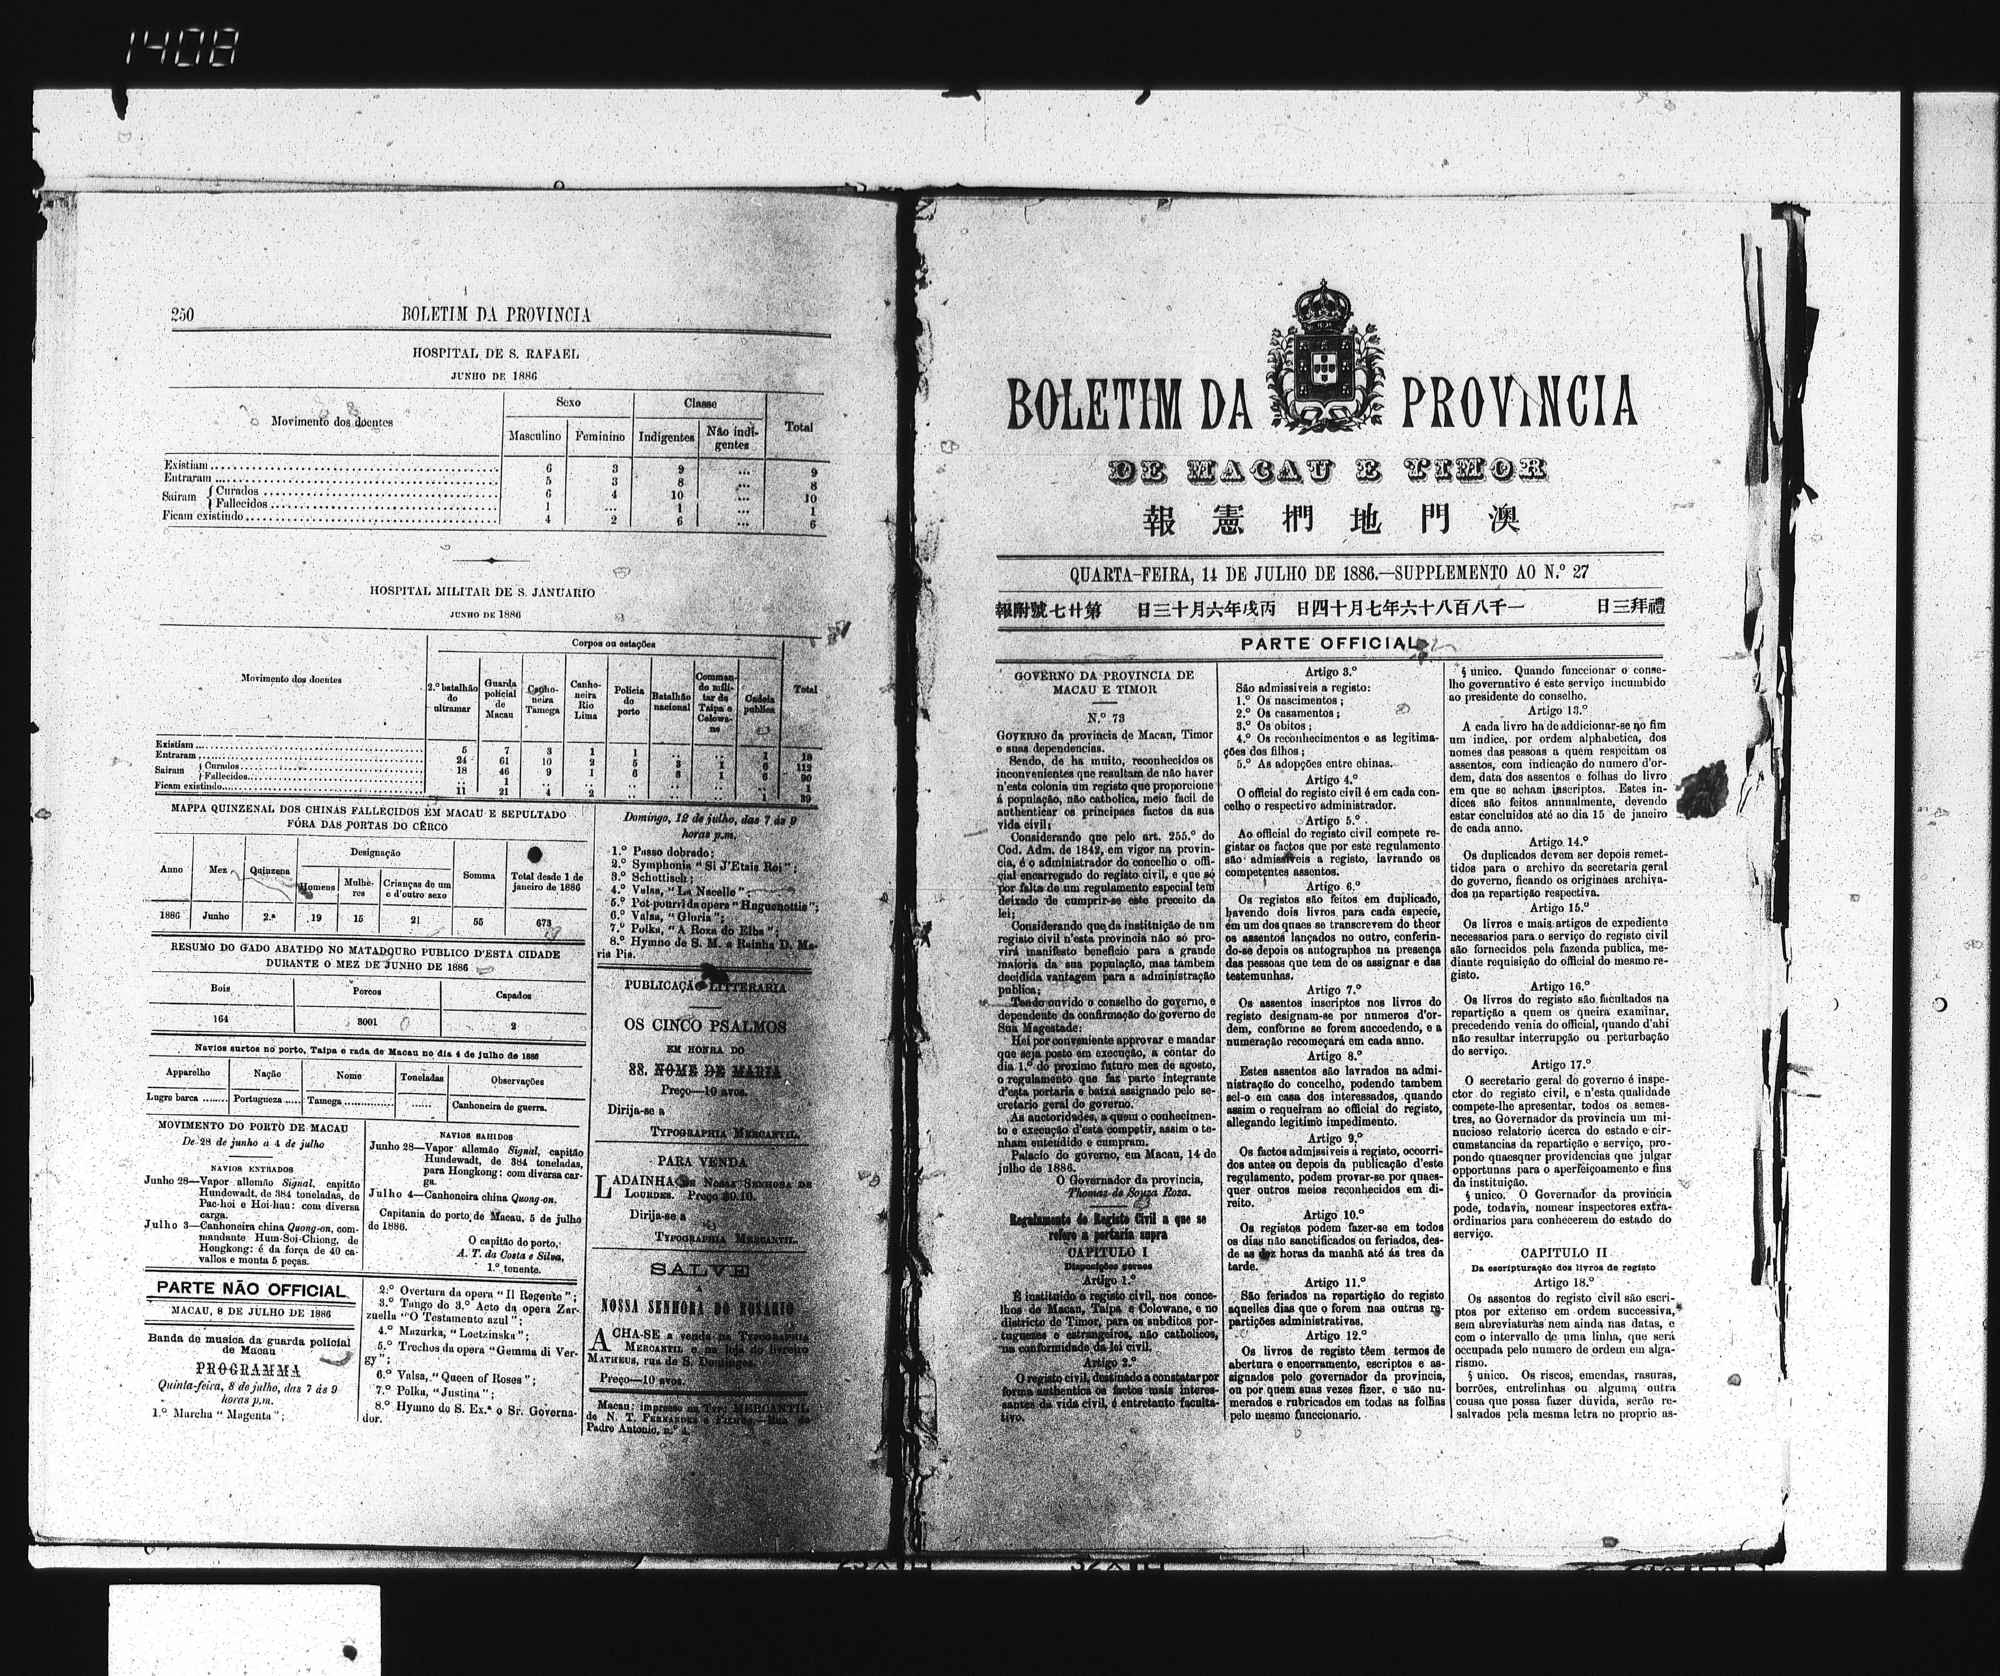 1408
250
BOLETIM DA PROVINCIA
HOSPITAL DE S. RAFAEL
JUNHO DE 1886
Movimento dos doentes
Sexo
Classe
Total
Masculino
Feminino
Indigentes
Não indi-
gentes
Existiam 6 3 9 ... 9
Entraram 5 3 8 ... 8
Sairam
Curados 6 4 10 ... 10
Fallecidos 1 ... 1 ... 1
Ficam existindo 4 2 6 ... 6
HOSPITAL MILITAR DE S. JANUARIO
JUNHO DE 1886
Movimento dos doentes
Corpos ou estações
Total
2.º batalhão
do
ultramar
Guarda
policial
de
Macau
Canho-
neira
Tamega
Canho-
neira
Rio
Lima
Policia
do
porto
Batalhão
nacional
Comman-
do mili-
tar da
Taipa e
Colowa-
ne
Cadeia
publica
Existiam 5 7 3 1 1 .. .. 1 18
Entraram 24 61 10 2 5 3 1 6 112
Sairam
Curados 18 46 9 1 6 3 1 6 90
Fallecidos .. 1 .. .. .. .. .. .. 1
Ficam existindo 11 21 4 2 .. .. .. 1 39
MAPPA QUINZENAL DOS CHINAS FALLECIDOS EM MACAU E SEPULTADO
FÓRA DAS PORTAS DO CÊRCO
Anno
Mez
Quinzena
Designação
Homens
Mulhe-
res
Crianças de um
e d'outro sexo
Somma
Total desde 1 de
janeiro de 1886
1886 Junho 2.ª 19 15 21 55 673
RESUMO DO GADO ABATIDO NO MATADOURO PUBLICO D'ESTA CIDADE
DURANTE O MEZ DE JUNHO DE 1886
Bois
Porcos
Capados
164 3001 2
Navios surtos no porto, Taipa e rada de Macau no dia 4 de julho de 1886
Apparelho
Nação
Nome
Toneladas
Observações
Lugre barca ........ Portugueza ..... Tamega .............. ...... Canhoneira de guerra.
MOVIMENTO DO PORTO DE MACAU
De 28 de junho a 4 de julho
NAVIOS ENTRADOS
Junho 28—Vapor allemão Signal, capitão
Hundewadt, de 384 toneladas, de
Pac-hoi e Hoi-hau: com diversa
carga.
Julho 3—Canhoneira china Quong-on, com-
mandante Hum-Soi-Chiong, de
Hongkong: é da força de 40 ca-
vallos e monta 5 peças.
NAVIOS SAHIDOS
Junho 28—Vapor allemão Signal, capitão
Hundewadt, de 384 toneladas,
para Hongkong: com diversa car-
ga.
Julho 4—Canhoneira china Quong-on.
Capitania do porto de Macau, 5 de julho
de 1886.
O capitão do porto,
A. T. da Costa e Silva,
1.º tenente.
PARTE NÃO OFFICIAL
MACAU, 8 DE JULHO DE 1886
Banda de musica da guarda policial
de Macau
PROGRAMMA
Quinta-feira, 8 de julho, das 7 ás 9
horas p.m.
1.º Marcha "Magenta";
2.º Overtura da opera "Il Regente";
3.º Tango do 3.º Acto da opera Zar-
zuella "O Testamento azul";
4.º Mazurka, "Loetzinska";
5.º Trechos da opera "Gemma di Ver-
gy";
6.º Valsa, "Queen of Roses";
7.º Polka, "Justina";
8.º Hymno de S. Ex.ª o Sr. Governa-
dor.
Domingo, 12 de julho, das 7 ás 9
horas p.m.
1.º Passo dobrado;
2.º Symphonia "Si J'Etais Roi";
3.º Schottisch;
4.º Valsa, "La Nacelle";
5.º Pot-pourri da opera "Huguenottis";
6.º Valsa, "Gloria";
7.º Polka, "A Roza do Elba";
8.º Hymno de S. M. a Rainha D. Ma-
ria Pia.
PUBLICAÇÃO LITTERARIA
OS CINCO PSALMOS
EM HONRA DO
SS. NOME DE MARIA
Preço—10 avos.
Dirija-se a
TYPOGRAPHIA MERCANTIL.
PARA VENDA
LADAINHA DE NOSSA SENHORA DE
LOURDES. Preço $0.10.
Dirija-se a
TYPOGRAPHIA MERCANTIL.
SALVE
A
NOSSA SENHORA DO ROSARIO
ACHA-SE a venda na TYPOGRAPHIA
MERCANTIL e na loja do livreiro
MATHEUS, rua de S. Domingos.
Preço—10 avos.
Macau: impresso na Typ. MERCANTIL
de N. T. FERNANDES e FILHOS—Rua do
Padre Antonio, n.º 4.
BOLETIM DA PROVINCIA
DE MACAU E TIMOR
報憲捫地門澳
QUARTA-FEIRA, 14 DE JULHO DE 1886.—SUPPLEMENTO AO N.º 27
報附號七廿第 日三十月六年戌丙 日四十月七年六十八百八千一 日三拜禮
PARTE OFFICIAL
GOVERNO DA PROVINCIA DE
MACAU E TIMOR
N.º 73
GOVERNO da provincia de Macau, Timor
e suas dependencias.
Sendo, de ha muito, reconhecidos os
inconvenientes que resultam de não haver
n'esta colonia um registo que proporcione
á população, não catholica, meio facil de
authenticar os principaes factos da sua
vida civil;
Considerando que pelo art. 255.º do
Cod. Adm. de 1842, em vigor na provin-
cia, é o administrador do concelho o offi-
cial encarregado do registo civil, e que só
por falta de um regulamento especial tem
deixado de cumprir-se este preceito da
lei;
Considerando que da instituição de um
registo civil n'esta provincia não só pro-
virá manifesto beneficio para a grande
maioria da sua população, mas tambem
decidida vantagem para a administração
publica;
Tendo ouvido o conselho do governo, e
dependente da confirmação do governo de
Sua Magestade:
Hei por conveniente approvar e mandar
que seja posto em execução, a contar do
dia 1.º do proximo futuro mez de agosto,
o regulamento que faz parte integrante
d'esta portaria e baixa assignado pelo se-
cretario geral do governo.
As auctoridades, a quem o conhecimen-
to e execução d'esta competir, assim o te-
nham entendido e cumpram.
Palacio do governo, em Macau, 14 de
julho de 1886.
O Governador da provincia,
Thomaz de Souza Roza.
Regulamento do Registo Civil a que se
refere a portaria supra
CAPITULO I
Disposições geraes
Artigo 1.º
É instituido o registo civil, nos conce-
lhos de Macau, Taipa e Colowane, e no
districto de Timor, para os subditos por-
tuguezes e estrangeiros, não catholicos,
na conformidade da lei civil.
Artigo 2.º
O registo civil, destinado a constatar por
forma authentica os factos mais interes-
santes da vida civil, é entretanto faculta-
tivo.
Artigo 3.º
São admissiveis a registo:
1.º Os nascimentos;
2.º Os casamentos;
3.º Os obitos;
4.º Os reconhecimentos e as legitima-
ções dos filhos;
5.º As adopções entre chinas.
Artigo 4.º
O official do registo civil é em cada con-
celho o respectivo administrador.
Artigo 5.º
Ao official do registo civil compete re-
gistar os factos que por este regulamento
são admissiveis a registo, lavrando os
competentes assentos.
Artigo 6.º
Os registos são feitos em duplicado,
havendo dois livros para cada especie,
em um dos quaes se transcrevem do theor
os assentos lançados no outro, conferin-
do-se depois os autographos na presença
das pessoas que tem de os assignar e das
testemunhas.
Artigo 7.º
Os assentos inscriptos nos livros do
registo designam-se por numeros d'or-
dem, conforme se forem succedendo, e a
numeração recomeçará em cada anno.
Artigo 8.º
Estes assentos são lavrados na admi-
nistração do concelho, podendo tambem
sel-o em casa dos interessados, quando
assim o requeiram ao official do registo,
allegando legitimo impedimento.
Artigo 9.º
Os factos admissiveis a registo, occorri-
dos antes ou depois da publicação d'este
regulamento, podem provar-se por quaes-
quer outros meios reconhecidos em di-
reito.
Artigo 10.º
Os registos podem fazer-se em todos
os dias não sanctificados ou feriados, des-
de as dez horas da manhã até ás tres da
tarde.
Artigo 11.º
São feriados na repartição do registo
aquelles dias que o forem nas outras re-
partições administrativas.
Artigo 12.º
Os livros de registo têem termos de
abertura e encerramento, escriptos e as-
signados pelo governador da provincia,
ou por quem suas vezes fizer, e são nu-
merados e rubricados em todas as folhas
pelo mesmo funccionario.
§ unico. Quando funccionar o conse-
lho governativo é este serviço incumbido
ao presidente do conselho.
Artigo 13.º
A cada livro ha de addicionar-se no fim
um indice, por ordem alphabetica, dos
nomes das pessoas a quem respeitam os
assentos, com indicação do numero d'or-
dem, data dos assentos e folhas do livro
em que se acham inscriptos. Estes in-
dices são feitos annualmente, devendo
estar concluidos até ao dia 15 de janeiro
de cada anno.
Artigo 14.º
Os duplicados devem ser depois remet-
tidos para o archivo da secretaria geral
do governo, ficando os originaes archiva-
dos na repartição respectiva.
Artigo 15.º
Os livros e mais artigos de expediente
necessarios para o serviço do registo civil
são fornecidos pela fazenda publica, me-
diante requisição do official do mesmo re-
gisto.
Artigo 16.º
Os livros do registo são facultados na
repartição a quem os queira examinar,
precedendo venia do official, quando d'ahi
não resultar interrupção ou perturbação
do serviço.
Artigo 17.º
O secretario geral do governo é inspe-
ctor do registo civil, e n'esta qualidade
compete-lhe apresentar, todos os semes-
tres, ao Governador da provincia um mi-
nucioso relatorio ácerca do estado e cir-
cumstancias da repartição e serviço, pro-
pondo quaesquer providencias que julgar
opportunas para o aperfeiçoamento e fins
da instituição.
§ unico. O Governador da provincia
pode, todavia, nomear inspectores extra-
ordinarios para conhecerem do estado do
serviço.
CAPITULO II
Da escripturação dos livros de registo
Artigo 18.º
Os assentos do registo civil são escri-
ptos por extenso em ordem successiva,
sem abreviaturas nem ainda nas datas, e
com o intervallo de uma linha, que será
occupada pelo numero de ordem em alga-
rismo.
§ unico. Os riscos, emendas, rasuras,
borrões, entrelinhas ou alguma outra
cousa que possa fazer duvida, serão re-
salvados pela mesma letra no proprio as-